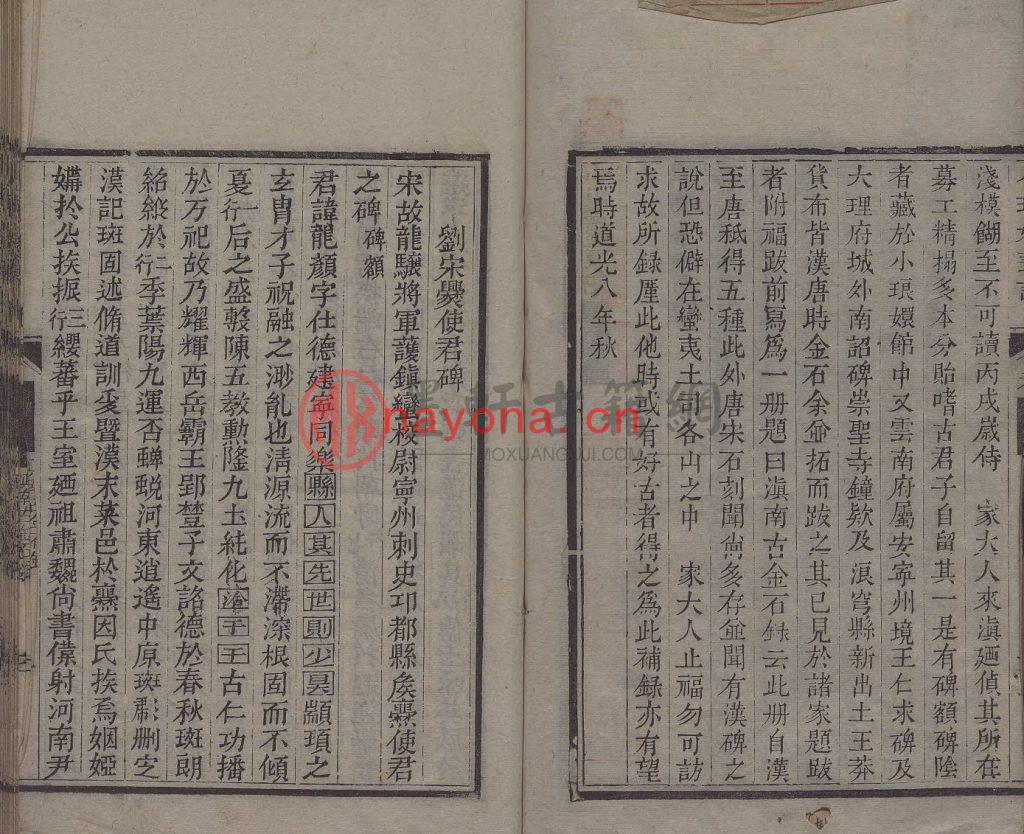 淺模餬至不可讀丙戌歲侍　家大人來滇廼偵其所在
募工精搨多本分貽嗜古君子自留其一是有碑額碑陰
者藏於小琅嬛館中又雲南府屬安寧州境王仁求碑及
大理府城外南詔碑崇聖寺鐘欵及浪穹縣新出土王莽
貨布皆漢唐時金石余竝拓而跋之其已見於諸家題跋
者附福跋前寫爲一册題曰滇南古金石録云此册自漢
至唐秪得五種此外唐宋石刻聞尙多存竝聞有漢碑之
說但恐僻在蠻夷土司各山之中　家大人止福勿可訪
求故所録厪此他時或有好古者得之爲此補録亦有望
焉時道光八年秋
劉宋爨使君碑
宋故龍驤將軍護鎮蠻校尉寧州刺史邛都縣矦爨使君
之碑　碑額
君諱龍顏字仕德建寧同樂縣人其先世則少昊顓頊之
玄胄才子祝融之渺胤也淸源流而不滯深根固而不傾
夏一行后之盛敷陳五教勲隆九土純化洽于干古仁功播
於万祀故乃耀輝西岳霸王郢楚子文詺德於春秋斑朗
紹縱於二行季葉陽九運否蟬蛻河東逍遙中原班彪删定
漢記斑固述脩道訓爰暨漢末菜邑於爨因氏挨焉姻婭
媾於公挨振三行纓蕃乎王室廼祖肅魏尙書僕射河南尹
nayona.cn
MOXUANGUJI.COM